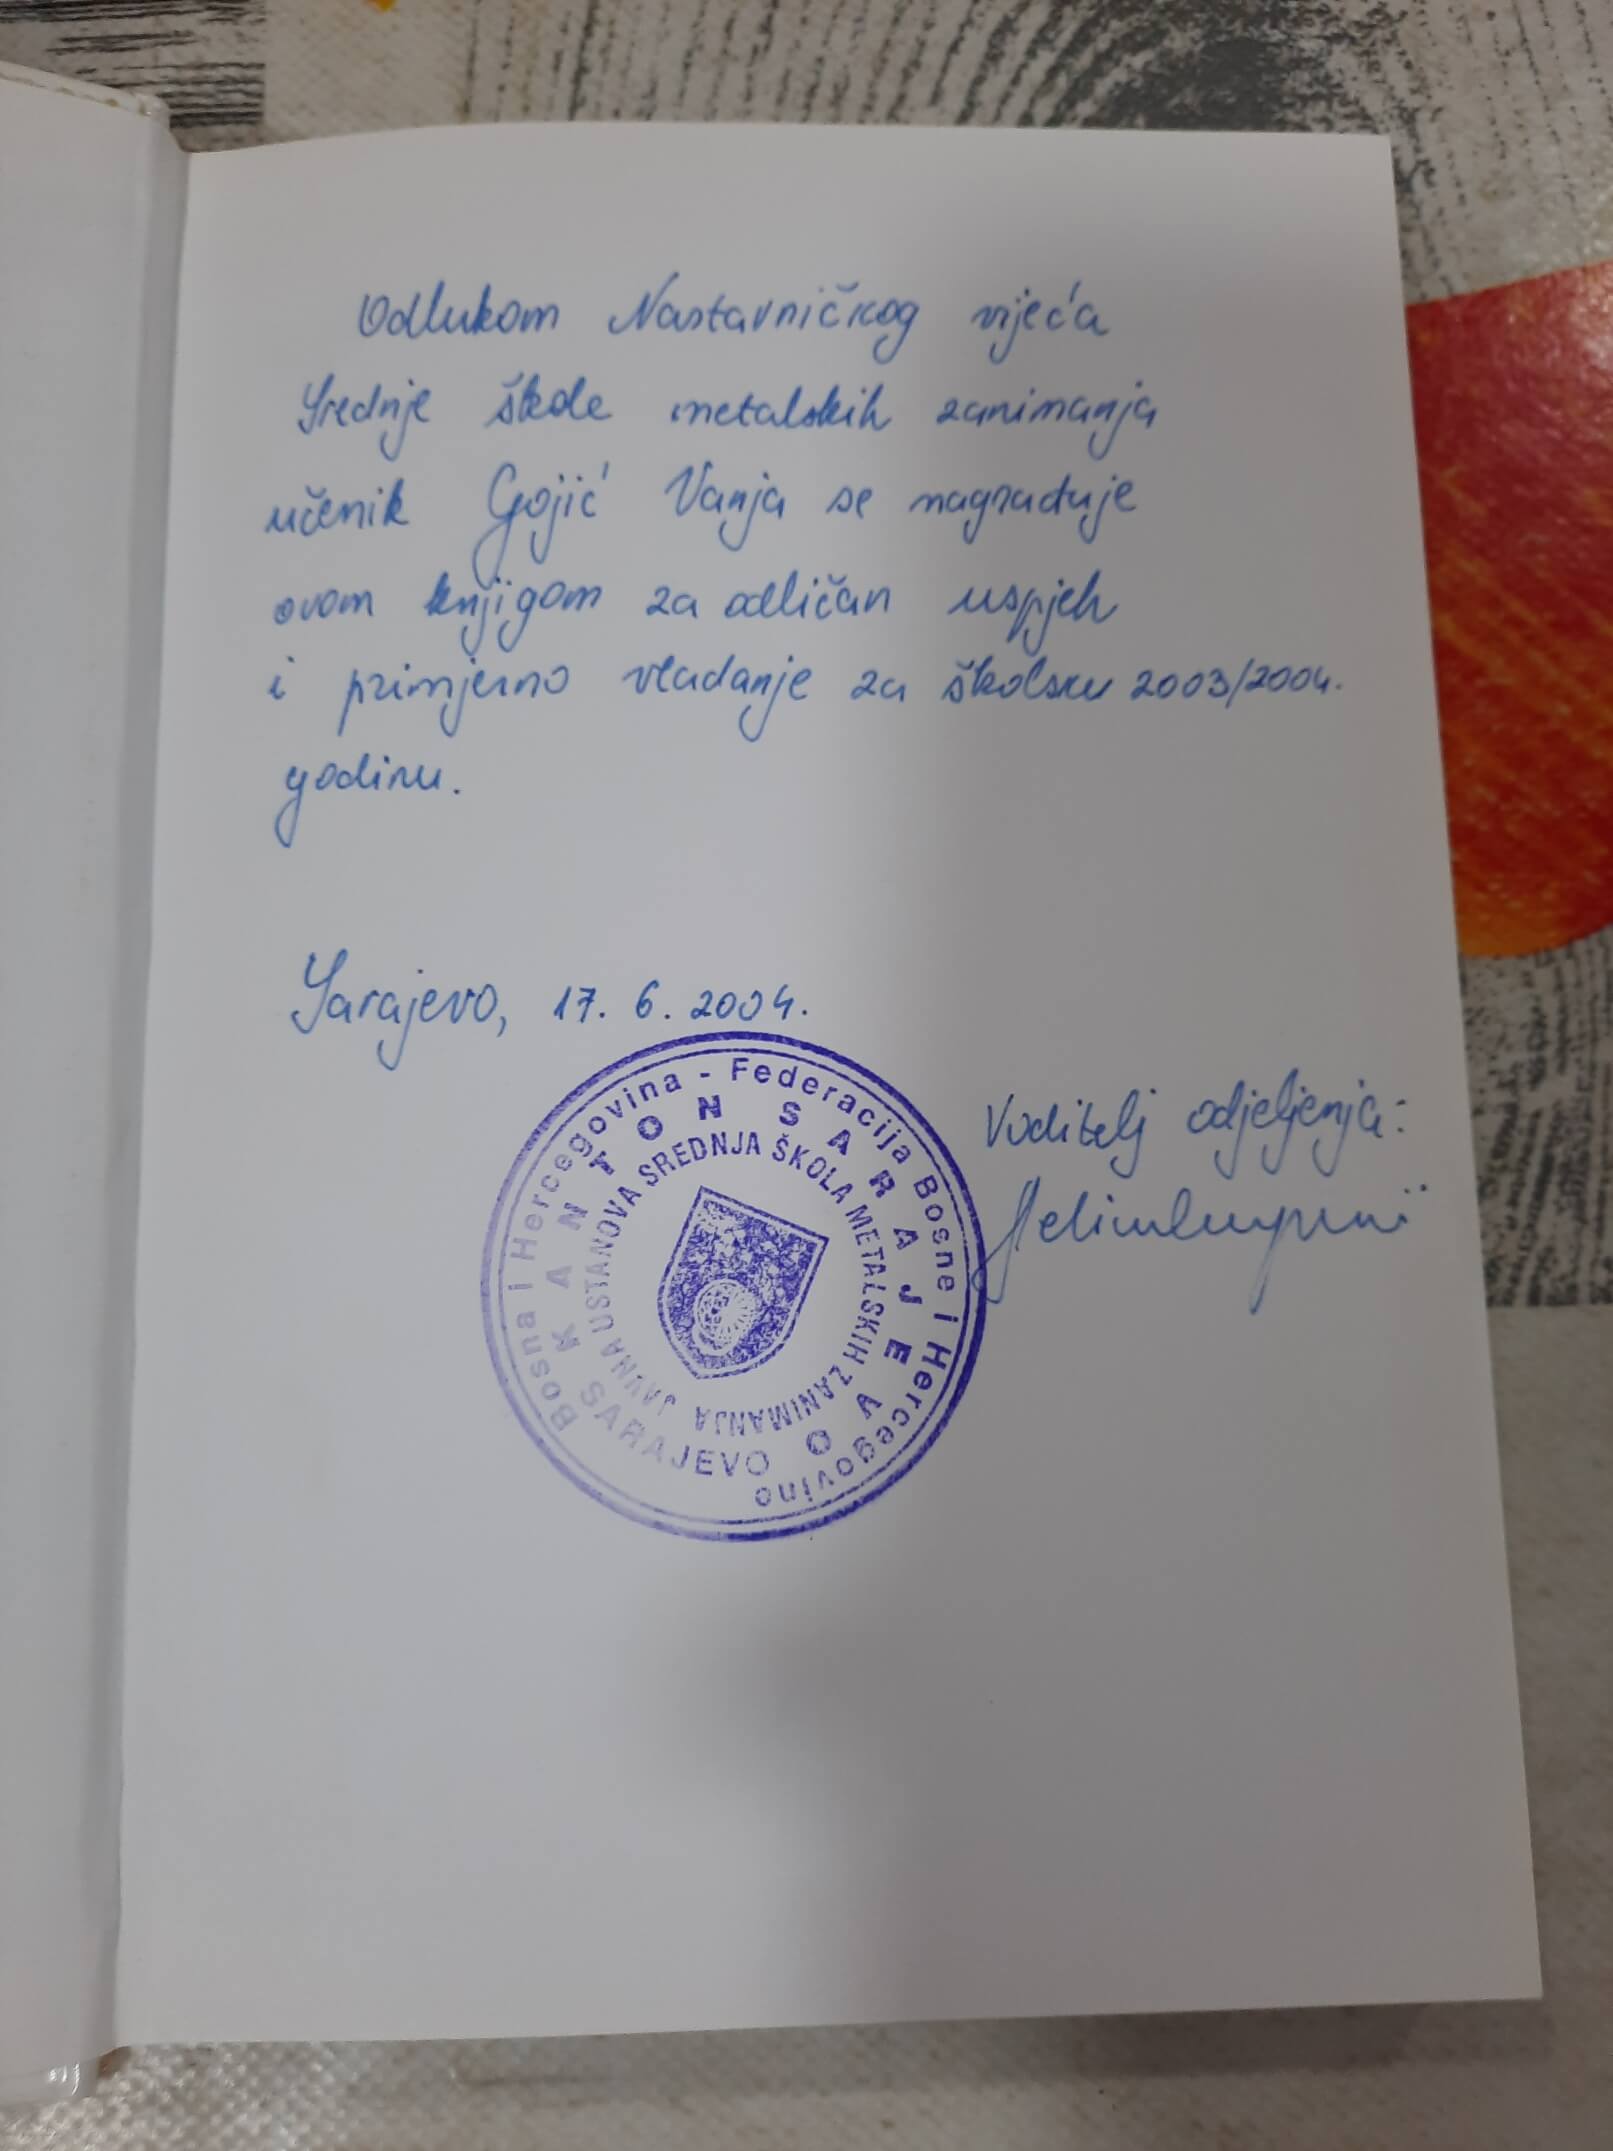 Odlukom Nastavničkog vijeća
Srednje škole metalskih zanimanja
učenik Gojić Vanja se nagrađuje
ovom knjigom za odličan uspjeh
i primjerno vladanje za školsku 2003/2004.
godinu.
Sarajevo, 17. 6. 2004.
Bosna i Hercegovina - Federacija Bosne i Hercegovine
KANTON SARAJEVO
JAVNA USTANOVA SREDNJA ŠKOLA METALSKIH ZANIMANJA
SARAJEVO
Voditelj odjeljenja: